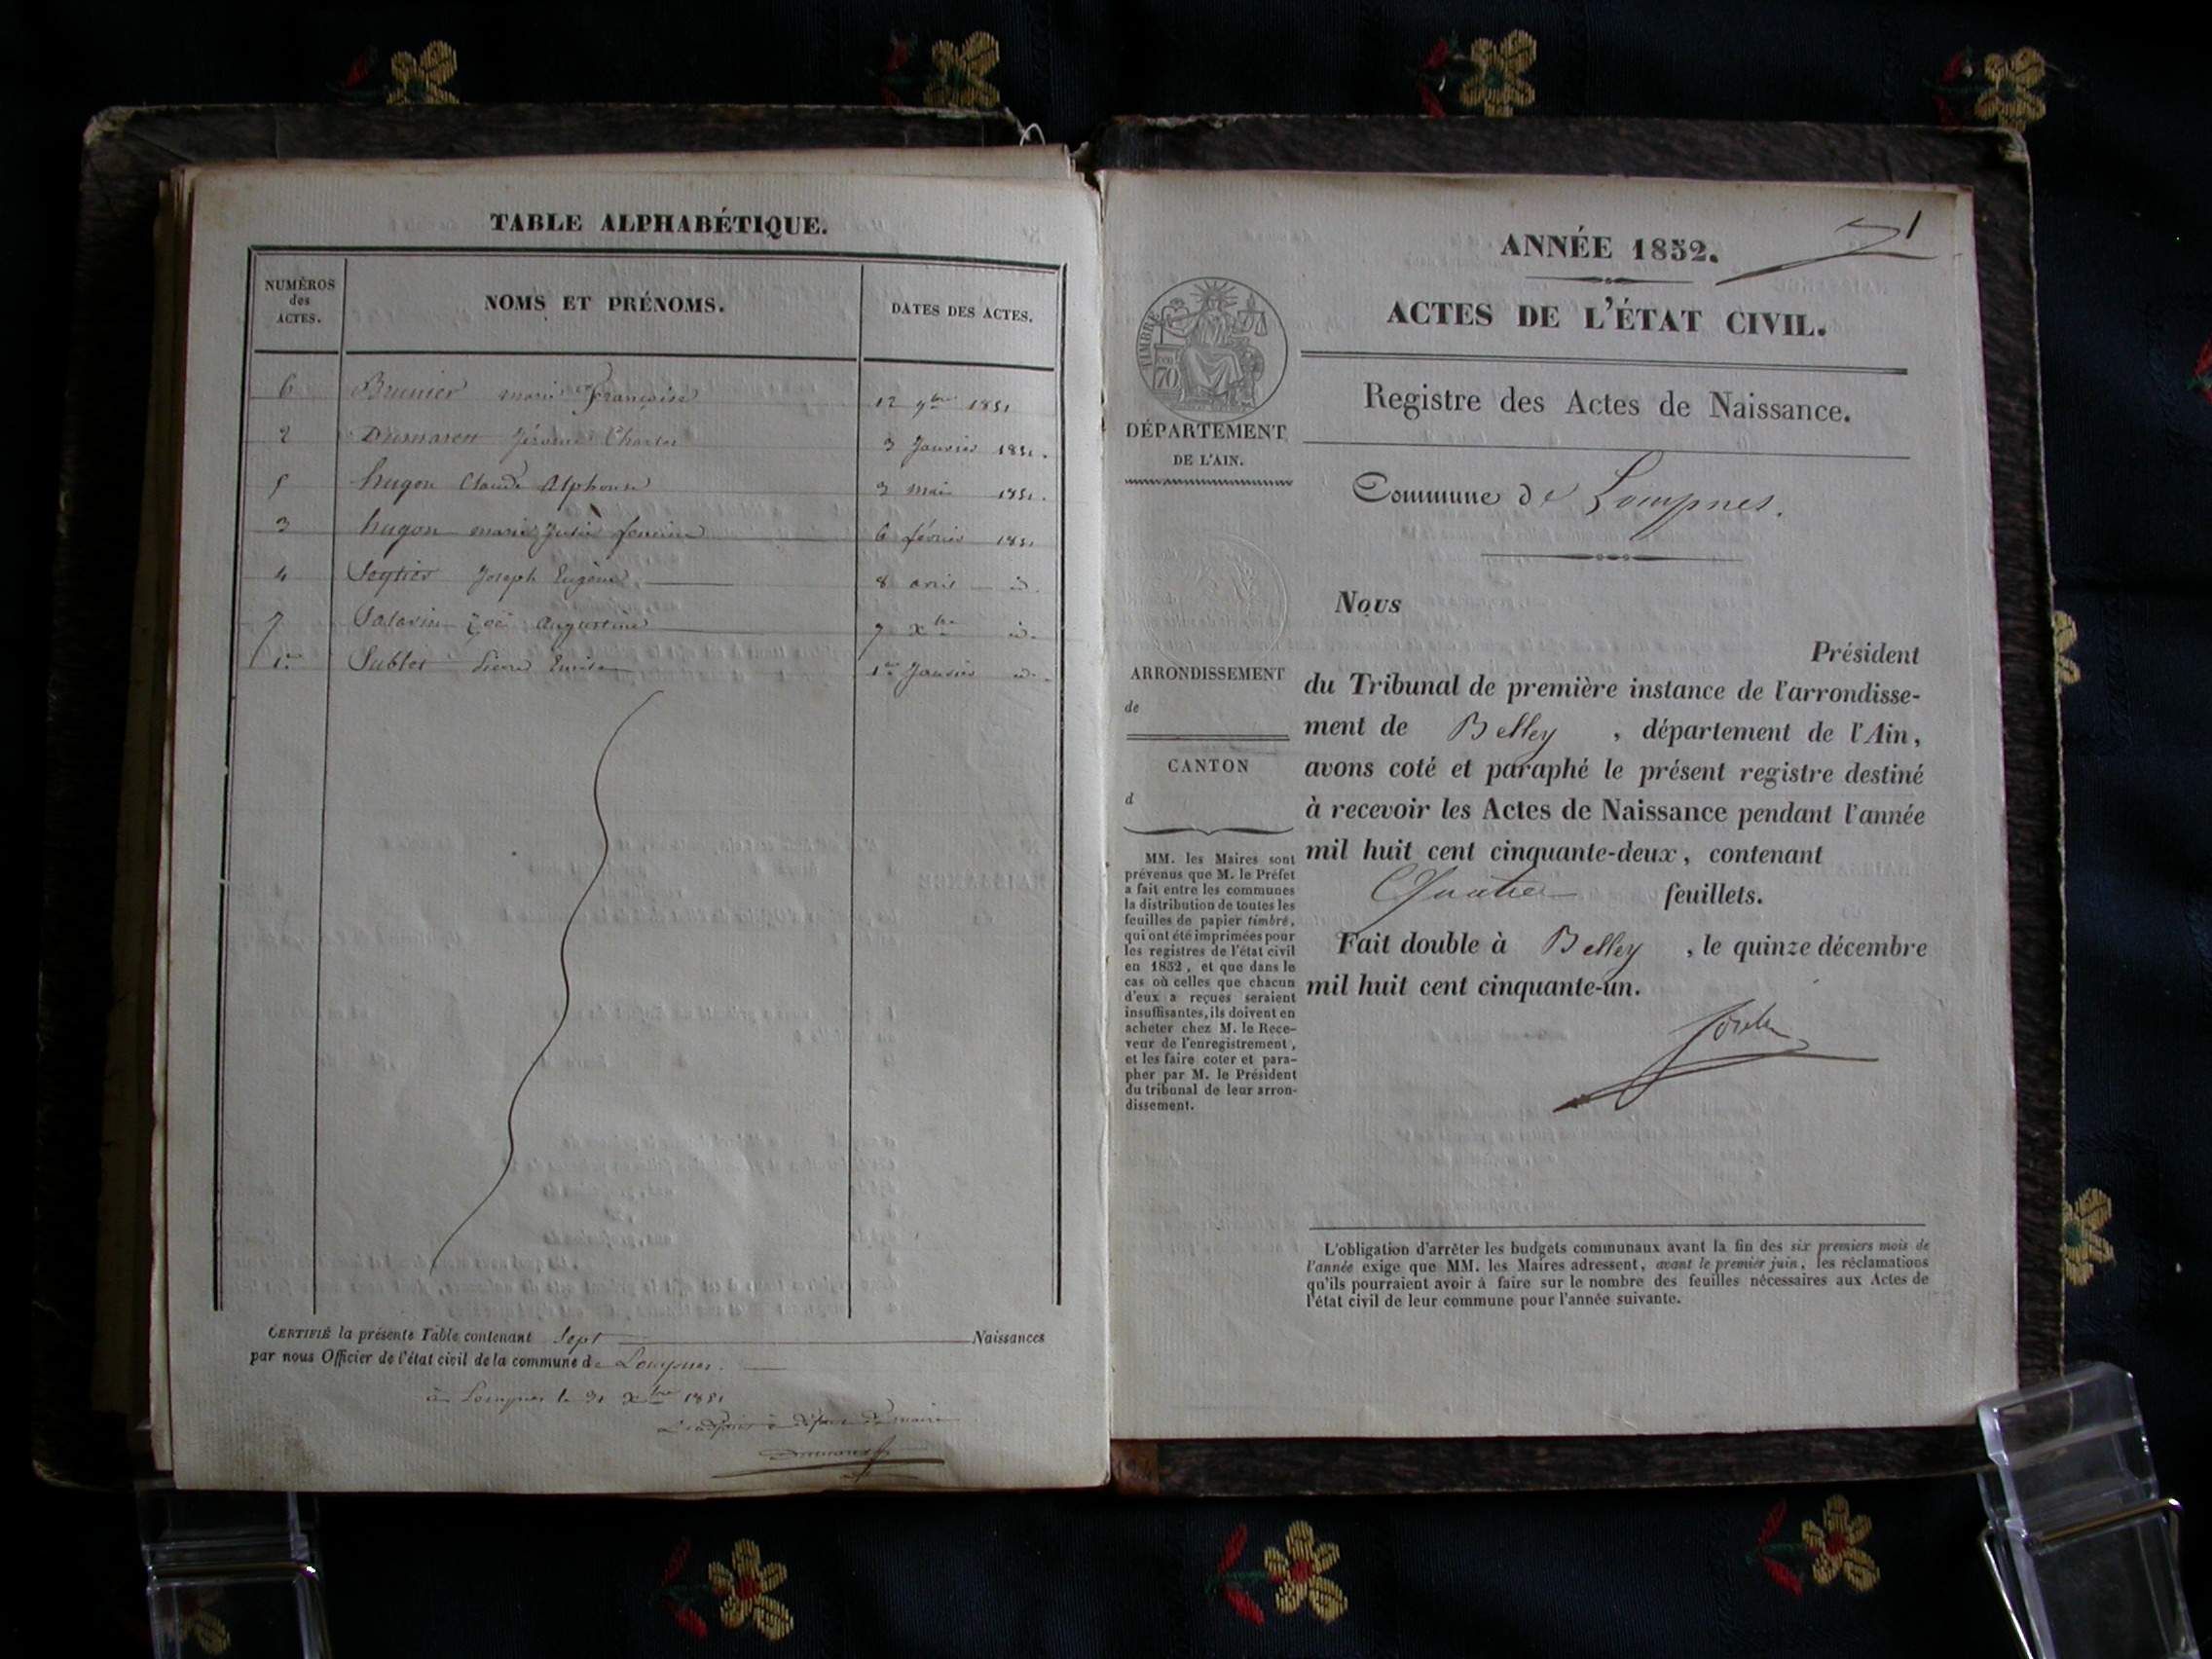 TABLE ALPHABÉTIQUE.
NUMÉROS
des
ACTES.
NOMS ET PRÉNOMS.
DATES DES ACTES.
6 Brunier marie Françoise 12 9bre 1851
2 Dumarest Jérome Charles 3 Janvier 1851.
5 hugon Claude Alphonse 3 mai 1851.
3 hugon marie Julie 6 février 1851
4 Joseph Eugène 8 avril id.
7 Zoé Augustine 7 Xbre id.
1er Sublet Pierre 1er Janvier id.
CERTIFIÉ la présente Table contenant Sept Naissances
par nous Officier de l'état civil de la commune de Lompnes.
à Lompnes le 31 Xbre 1851
L'adjoint à défaut du maire
Dumarest
1
ANNÉE 1852.
ACTES DE L'ÉTAT CIVIL.
Registre des Actes de Naissance.
Commune de Lompnes.
TIMBRE
70
DÉPARTEMENT
DE L'AIN.
ARRONDISSEMENT
de
CANTON
d
MM. les Maires sont
prévenus que M. le Préfet
a fait entre les communes
la distribution de toutes les
feuilles de papier timbré,
qui ont été imprimées pour
les registres de l'état civil
en 1852, et que dans le
cas où celles que chacun
d'eux a reçues seraient
insuffisantes, ils doivent en
acheter chez M. le Rece-
veur de l'enregistrement,
et les faire coter et para-
pher par M. le Président
du tribunal de leur arron-
dissement.
Nous
Président
du Tribunal de première instance de l'arrondisse-
ment de Belley , département de l'Ain,
avons coté et paraphé le présent registre destiné
à recevoir les Actes de Naissance pendant l'année
mil huit cent cinquante-deux, contenant
Quatre feuillets.
Fait double à Belley , le quinze décembre
mil huit cent cinquante-un.
L'obligation d'arrêter les budgets communaux avant la fin des six premiers mois de
l'année exige que MM. les Maires adressent, avant le premier juin, les réclamations
qu'ils pourraient avoir à faire sur le nombre des feuilles nécessaires aux Actes de
l'état civil de leur commune pour l'année suivante.